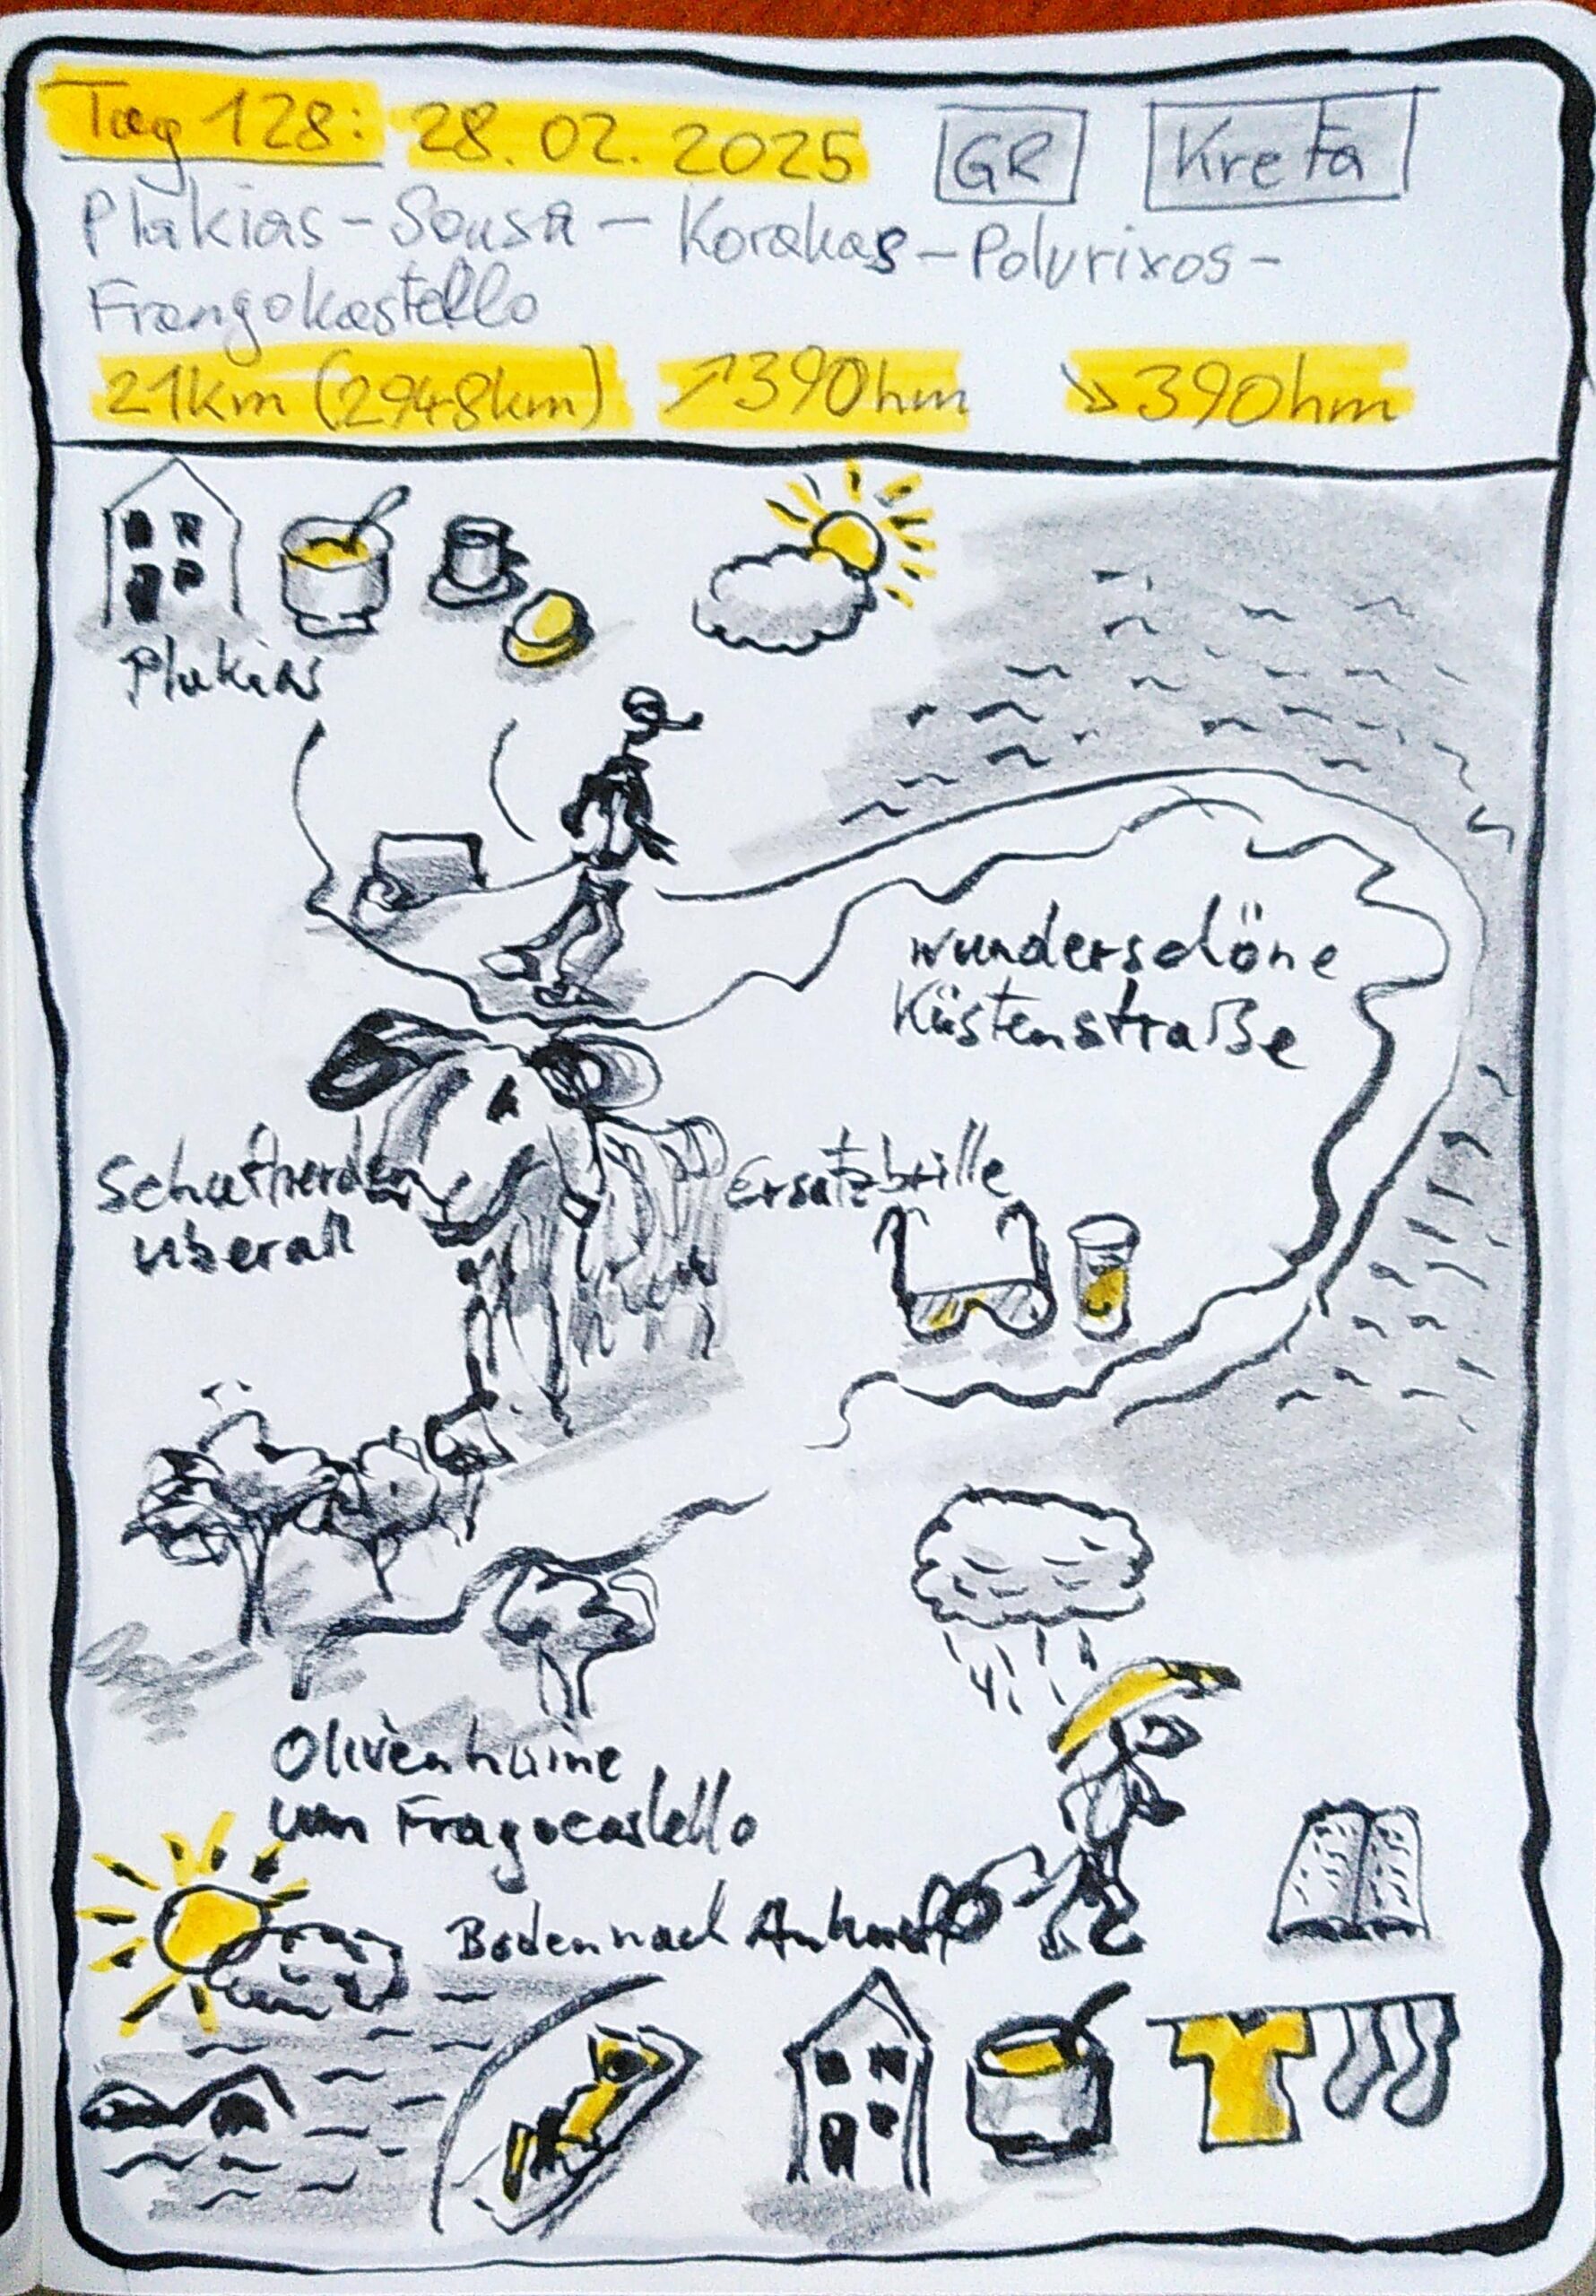 Tag 128: 28.02.2025 GR Kreta
Plakias - Sousa - Korakas - Polurixos -
Frangokastello
21km (2948km) ↗390hm ↘390hm
Plakias
wunderschöne
Küstenstraße
Schafherden
überall
Ersatzbrille
Olivenhaine
um Fragocastello
Baden nach Ankunft